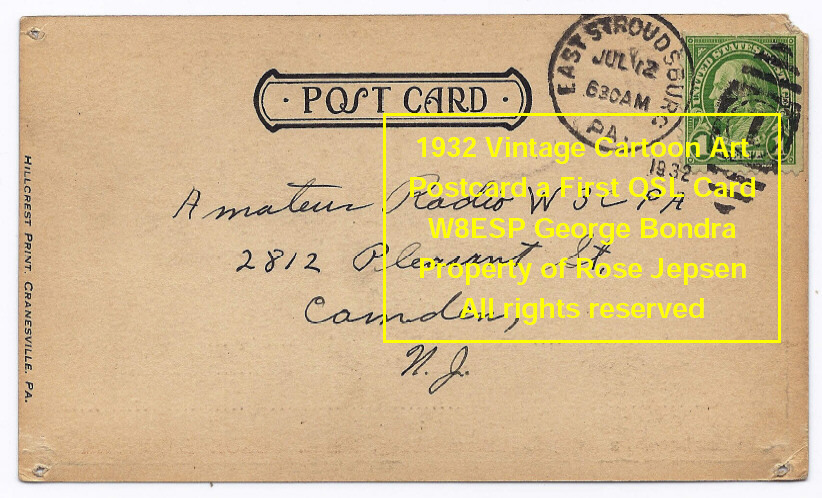 EAST STROUDSBURG
JUL 12
630AM
PA.
1932
UNITED STATES
POST CARD
1932 Vintage Cartoon Art
Postcard a First QSL Card
W8ESP George Bondra
Property of Rose Jepsen
All rights reserved
Amateur Radio W3
2812 Pleasant St.
Camden,
N.J.
HILLCREST PRINT. CRANESVILLE. PA.